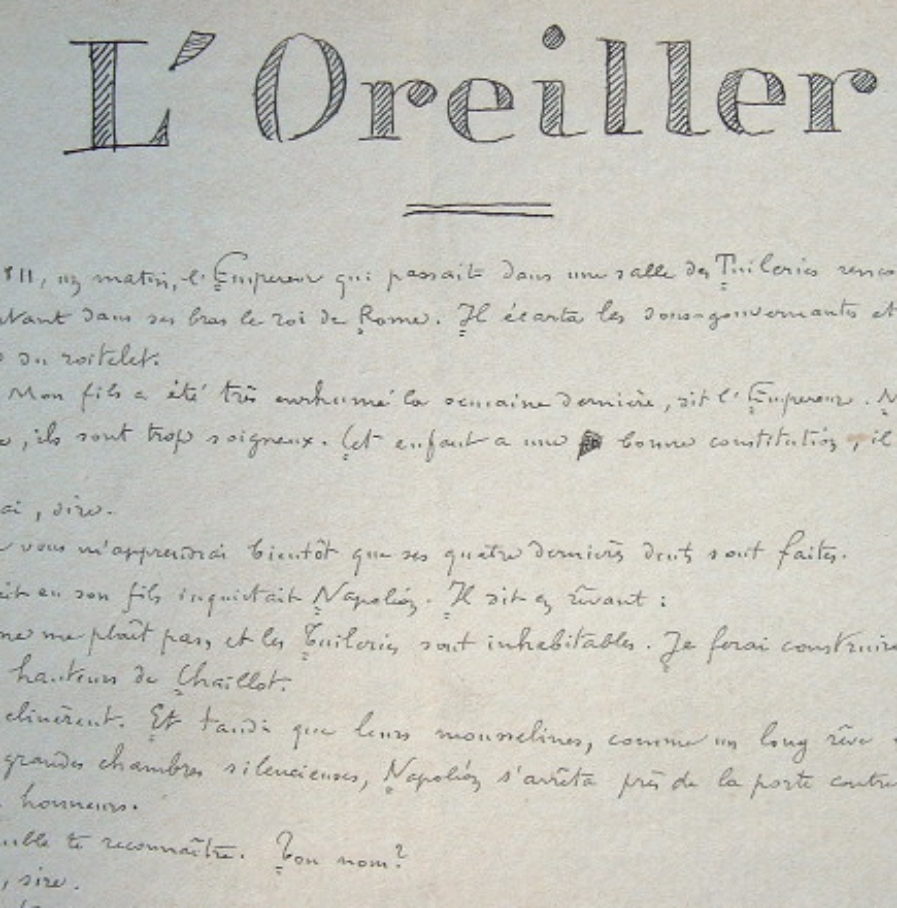 L'Oreiller
, un matin, l'Empereur qui passait dans une salle des Tuileries
dans ses bras le roi de Rome. Il écarta les sous-gouvernantes et
du roitelet.
Mon fils a été très enrhumé la semaine dernière, dit l'Empereur.
, ils sont trop soigneux. Cet enfant a une bonne constitution, il
, sire.
vous m'apprendrai bientôt que ses quatre dernières dents sont faites.
en son fils inquiétait Napoléon. Il dit en rêvant :
me plaît pas, et les Tuileries sont inhabitables. Je ferai construire
hauteurs de Chaillot.
Et tandis que leurs mousselines, comme un long rêve
grandes chambres silencieuses, Napoléon s'arrêta près de la porte
honneurs.
te reconnaître. Ton nom?
, sire.